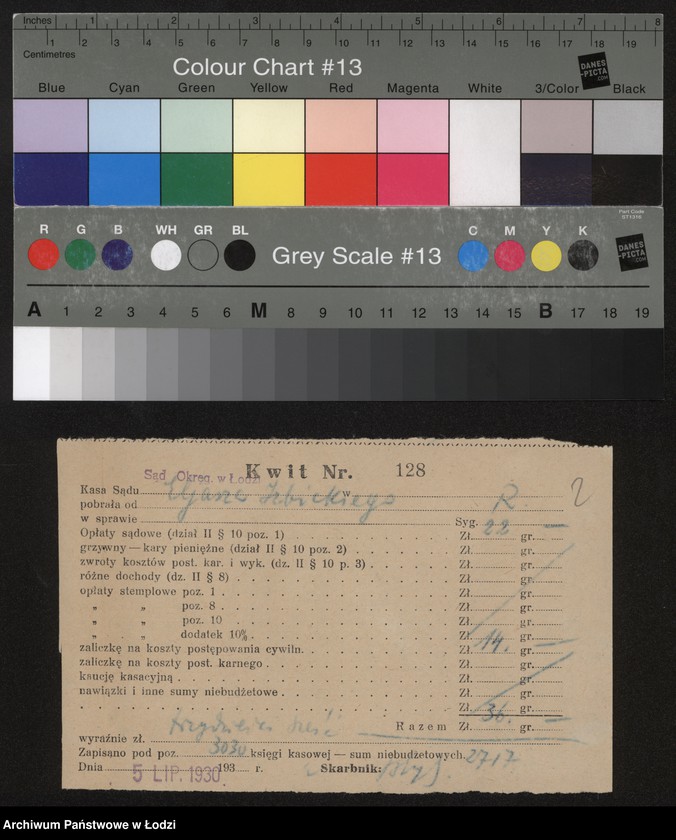 Inches 1 2 3 4 5 6 7 8
1 2 3 4 5 6 7 8 9 10 11 12 13 14 15 16 17 18 19
Centimetres
Colour Chart #13
DANES-PICTA.COM
Blue Cyan Green Yellow Red Magenta White 3/Color Black
Part Code
ST1316
R G B WH GR BL C M Y K
Grey Scale #13
DANES-PICTA.COM
A 1 2 3 4 5 6 M 8 9 10 11 12 13 14 15 B 17 18 19
Kwit Nr. 128
Sąd Okręg. w Łodzi
2
Kasa Sądu w
pobrała od Eljasza Zbickiego
w sprawie Syg. R.
Opłaty sądowe (dział II § 10 poz. 1) Zł. 22 gr. —
grzywny — kary pieniężne (dział II § 10 poz. 2) Zł. gr.
zwroty kosztów post. kar. i wyk. (dz. II § 10 p. 3) Zł. gr.
różne dochody (dz. II § 8) Zł. gr.
opłaty stemplowe poz. 1 Zł. gr.
„ „ poz. 8 Zł. gr.
„ „ poz. 10 Zł. gr.
„ „ dodatek 10%. Zł. gr.
zaliczkę na koszty postępowania cywiln. Zł. 14. gr. —
zaliczkę na koszty post. karnego Zł. gr.
kaucję kasacyjną Zł. gr.
nawiązki i inne sumy niebudżetowe Zł. gr.
Zł. gr.
Razem Zł. 36. gr. —
wyraźnie zł. trzydzieści sześć
Zapisano pod poz. 3030 księgi kasowej — sum niebudżetowych 2717
Dnia 5 LIP. 1930 193 r. Skarbnik:
Archiwum Państwowe w Łodzi